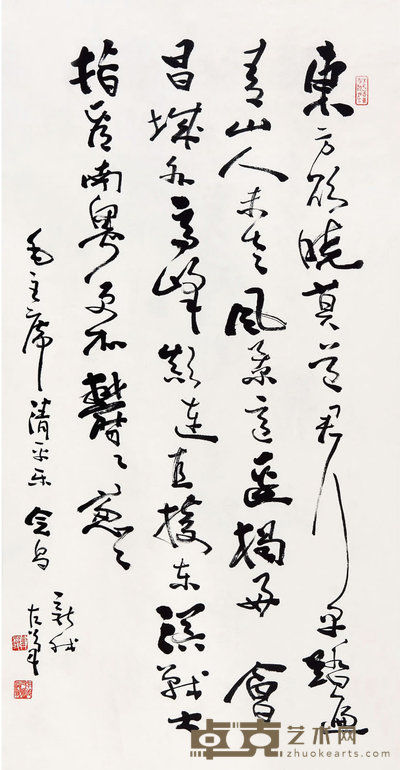 東方欲曉莫道君行早踏遍
青山人未老風景這邊獨好會
昌城外高峰顛連直接东溟戰士
指看南粤更加鬱々葱々
毛主席清平乐会昌
新我
左笔
卓克艺术网
zhuokearts.com